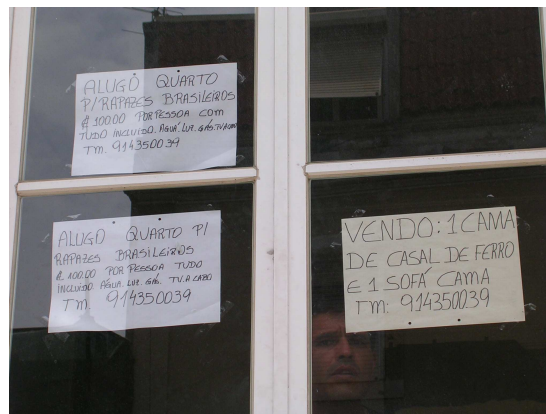 ALUGO QUARTO
P/ RAPAZES BRASILEIROS
€ 100.00 POR PESSOA COM
TUDO INCLUIDO. AGUA. LUZ. GÁS. TV.A CABO
TM. 914350039
ALUGO QUARTO P/
RAPAZES BRASILEIROS
€. 100.00 POR PESSOA TUDO
INCLUIDO. AGUA. LUZ. GÁS. TV. A CABO
TM. 914350039
VENDO: 1 CAMA
DE CASAL DE FERRO
E 1 SOFÁ CAMA
TM: 914350039